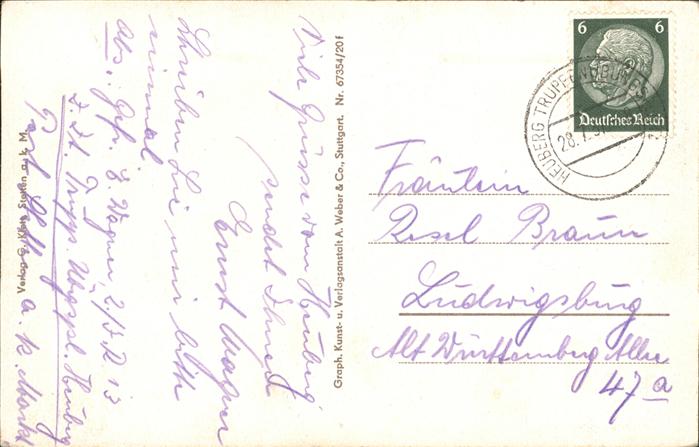 Viele Grüsse vom Heuberg
sendet Ihnen
Ernst Wagner
Schreiben Sie mir bitte
einmal
Abs.: Gefr. E. Wagner, 2/J.R. 13
z. Zt. Trupp. Übgspl. Heuberg
Post Stetten a. k. Markt
Verlag G. Klotz, Stetten a. k. M.
Graph. Kunst- u. Verlagsanstalt A. Weber & Co., Stuttgart. Nr. 67354/20f
6 6
Deutsches Reich
HEUBERG TRUPPENÜBUNGS
28.7.
Fräulein
Resel Braun
Ludwigsburg
Alt Württemberg Allee
47a